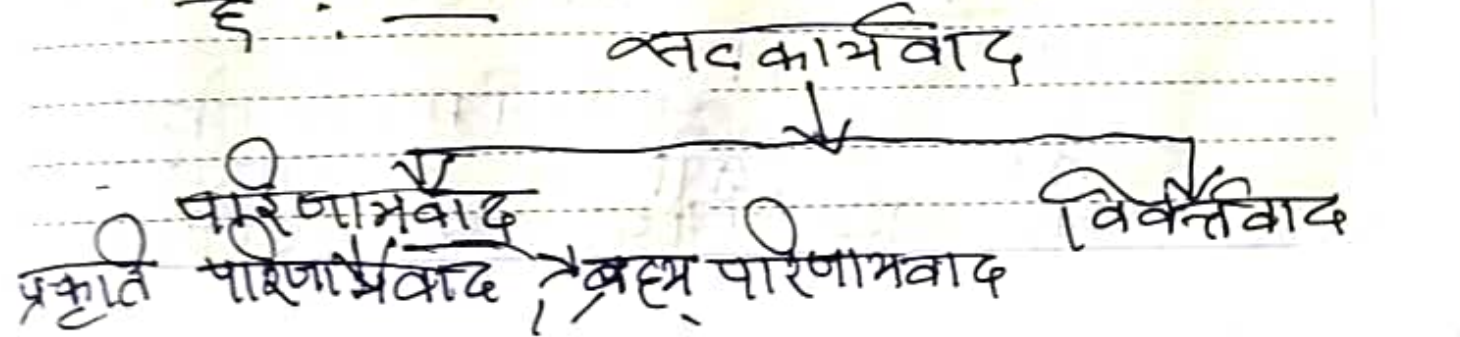 है : —
सतकार्यवाद
परिणामवाद विवर्त्तवाद
प्रकृति परिणामवाद , ब्रह्म परिणामवाद